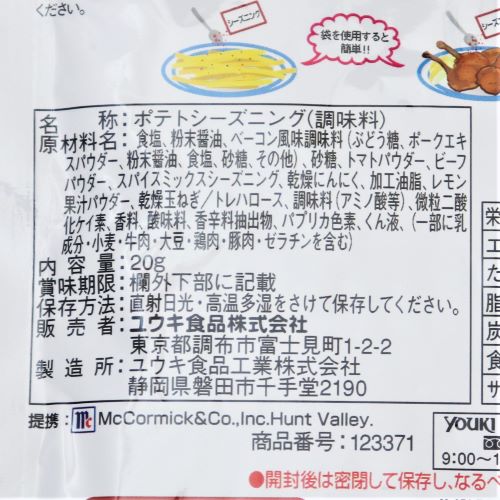 ください。
シーズニング
袋を使用すると
簡単!!
シーズニング
名　　称:ポテトシーズニング(調味料)
原材料名:食塩、粉末醤油、ベーコン風味調味料(ぶどう糖、ポークエキ
スパウダー、粉末醤油、食塩、砂糖、その他)、砂糖、トマトパウダー、ビーフ
パウダー、スパイスミックスシーズニング、乾燥にんにく、加工油脂、レモン
果汁パウダー、乾燥玉ねぎ/トレハロース、調味料(アミノ酸等)、微粒二酸
化ケイ素、香料、酸味料、香辛料抽出物、パプリカ色素、くん液、(一部に乳
成分・小麦・牛肉・大豆・鶏肉・豚肉・ゼラチンを含む)
内 容 量:20g
賞味期限:欄外下部に記載
保存方法:直射日光・高温多湿をさけて保存してください。
販 売 者:ユウキ食品株式会社
東京都調布市富士見町1-2-2
製 造 所:ユウキ食品工業株式会社
静岡県磐田市千手堂2190
提携: Mc McCormick&Co.,Inc.Hunt Valley.
商品番号:123371
●開封後は密閉して保存し、なるべ
栄
エ
た
脂
炭
食
サ
YOUKI
9:00~1